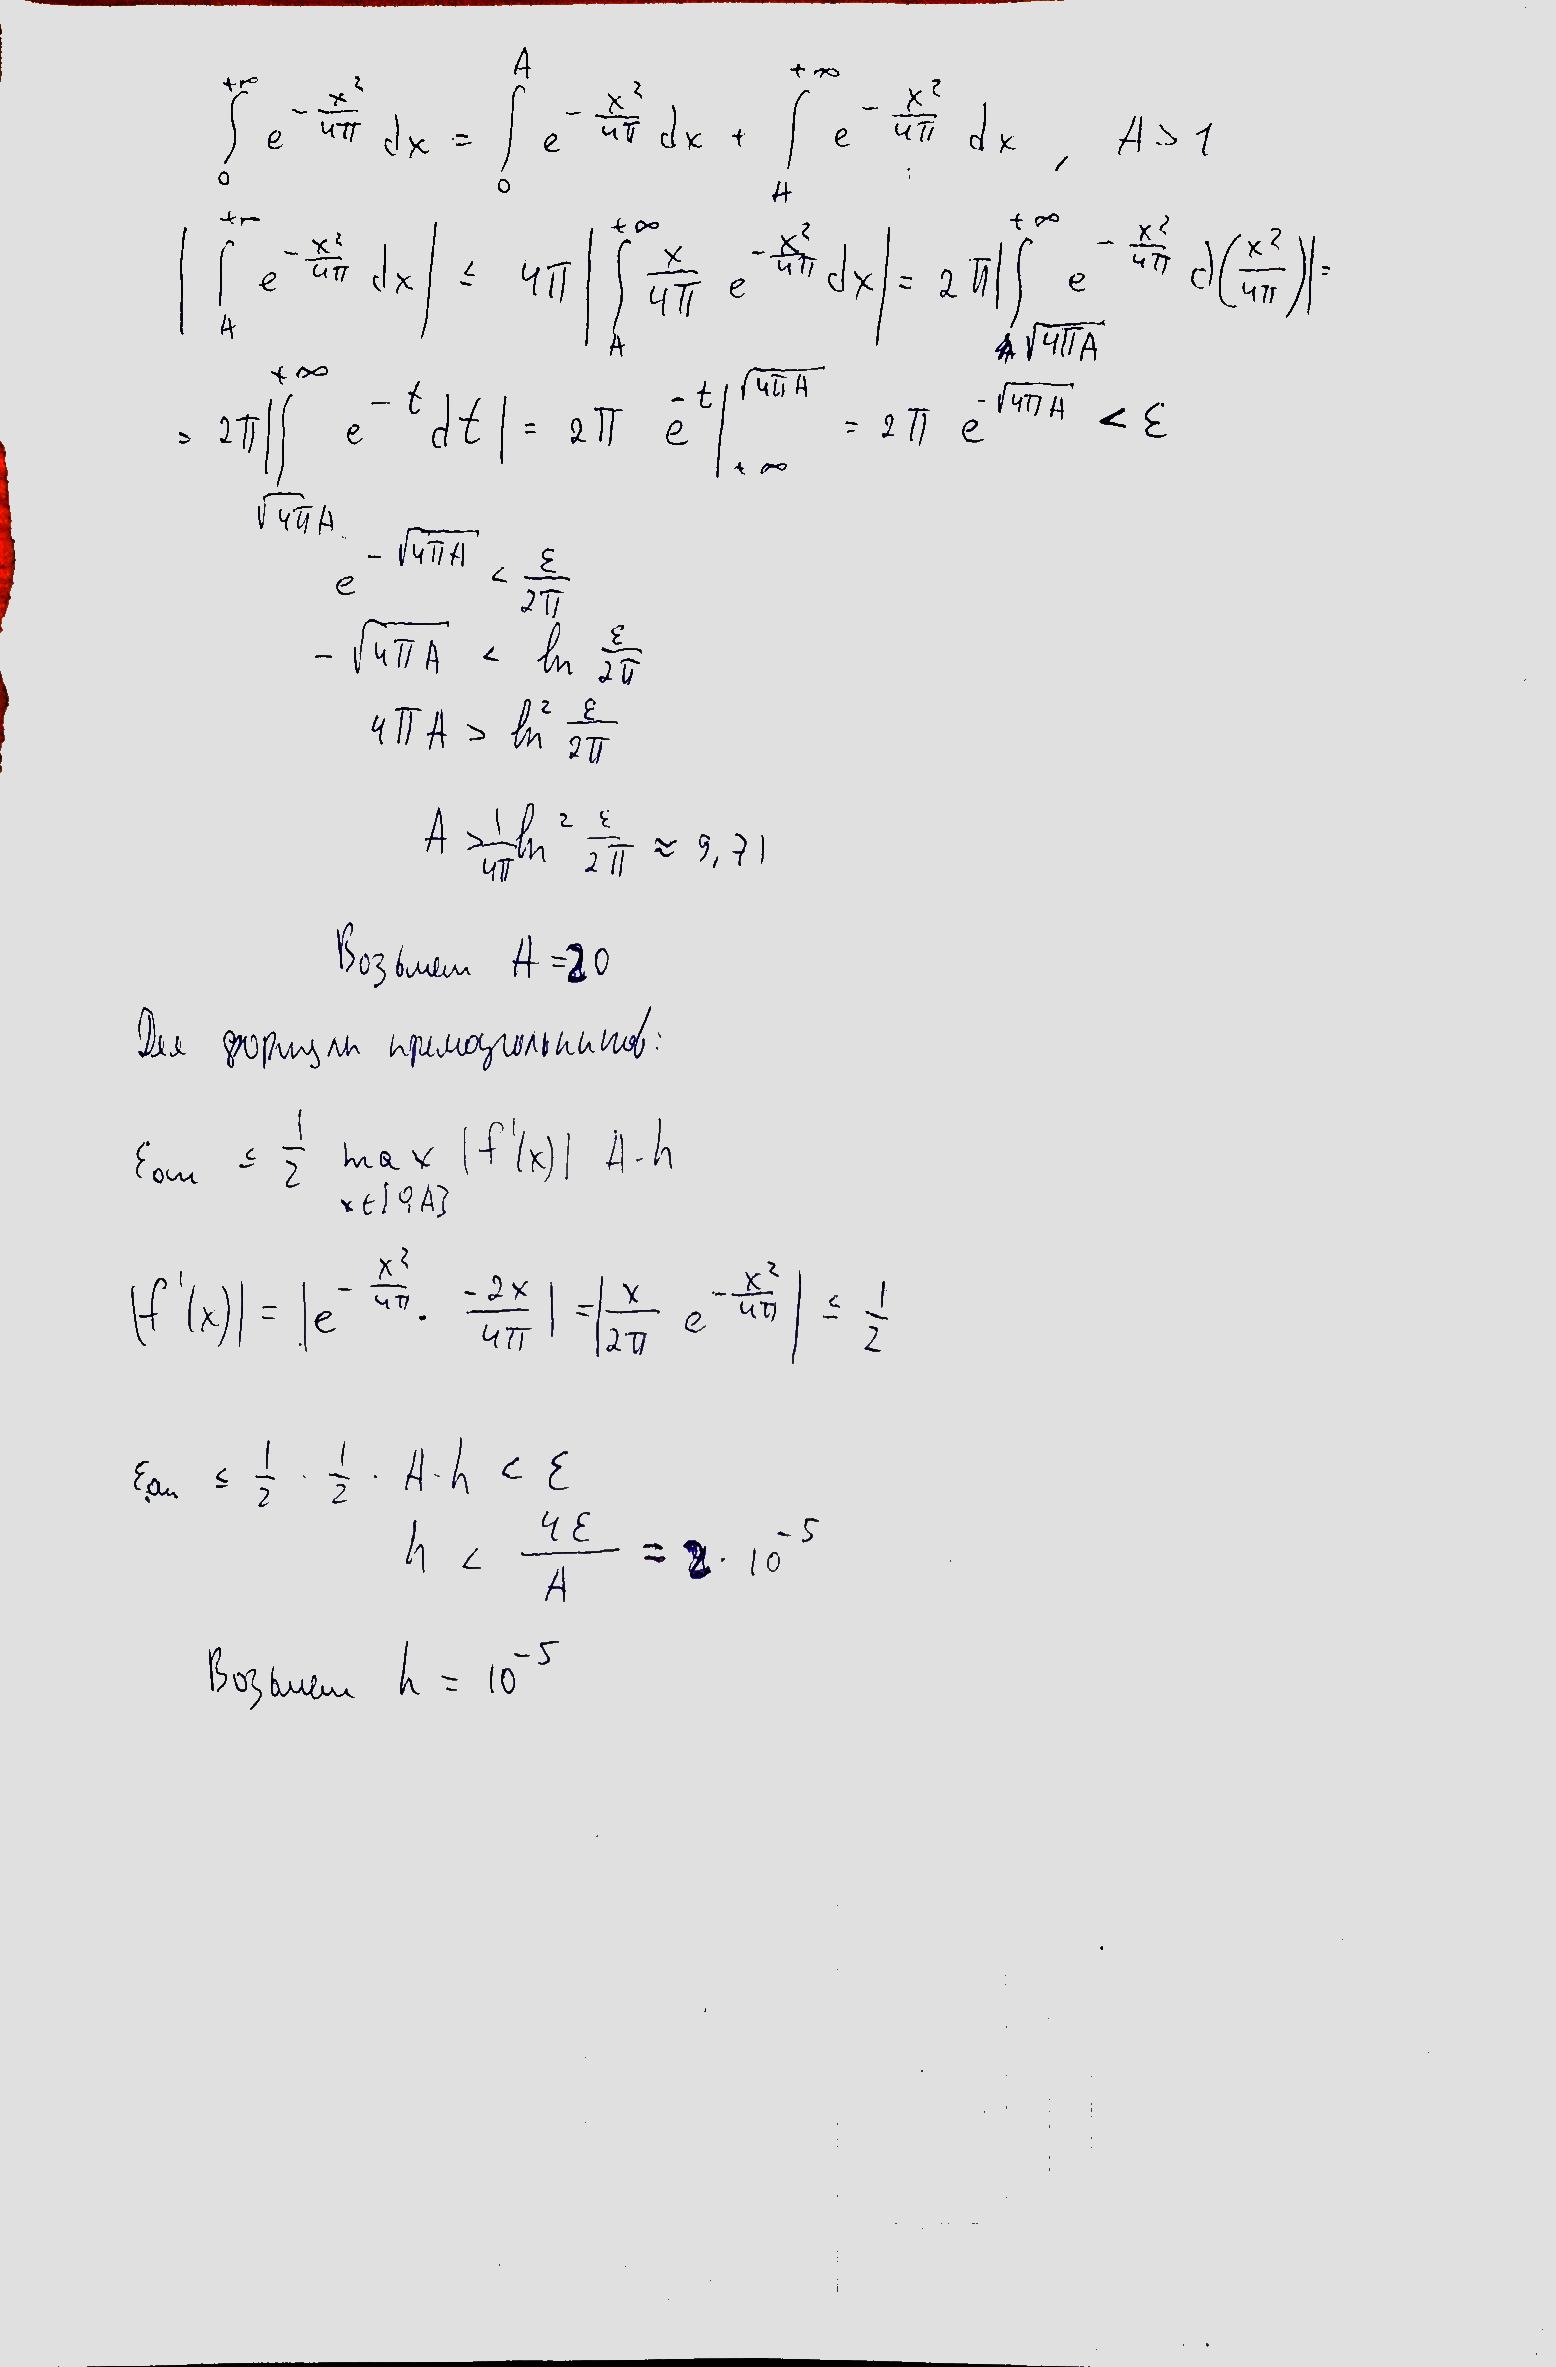 ∫₀^{+∞} e^{-x²/4π} dx = ∫₀^A e^{-x²/4π} dx + ∫_A^{+∞} e^{-x²/4π} dx, A > 1
|∫_A^{+∞} e^{-x²/4π} dx| ≤ 4π |∫_A^{+∞} x/4π e^{-x²/4π} dx| = 2π |∫_{√4πA}^{+∞} e^{-x²/4π} d(x²/4π)| =
= 2π |∫_{√4πA}^{+∞} e^{-t} dt| = 2π e^{-t} |_{+∞}^{√4πA} = 2π e^{-√4πA} < ε
e^{-√4πA} < ε/2π
-√4πA < ln ε/2π
4πA > ln² ε/2π
A > 1/4π ln² ε/2π ≈ 9,71
Возьмем A = 20
Для формулы прямоугольников:
ε ≤ 1/2 max_{x∈[0,A]} |f'(x)| A·h
|f'(x)| = |e^{-x²/4π} · -2x/4π| = |x/2π e^{-x²/4π}| ≤ 1/2
ε ≤ 1/2 · 1/2 · A·h < ε
h < 4ε/A = 2·10⁻⁵
Возьмем h = 10⁻⁵